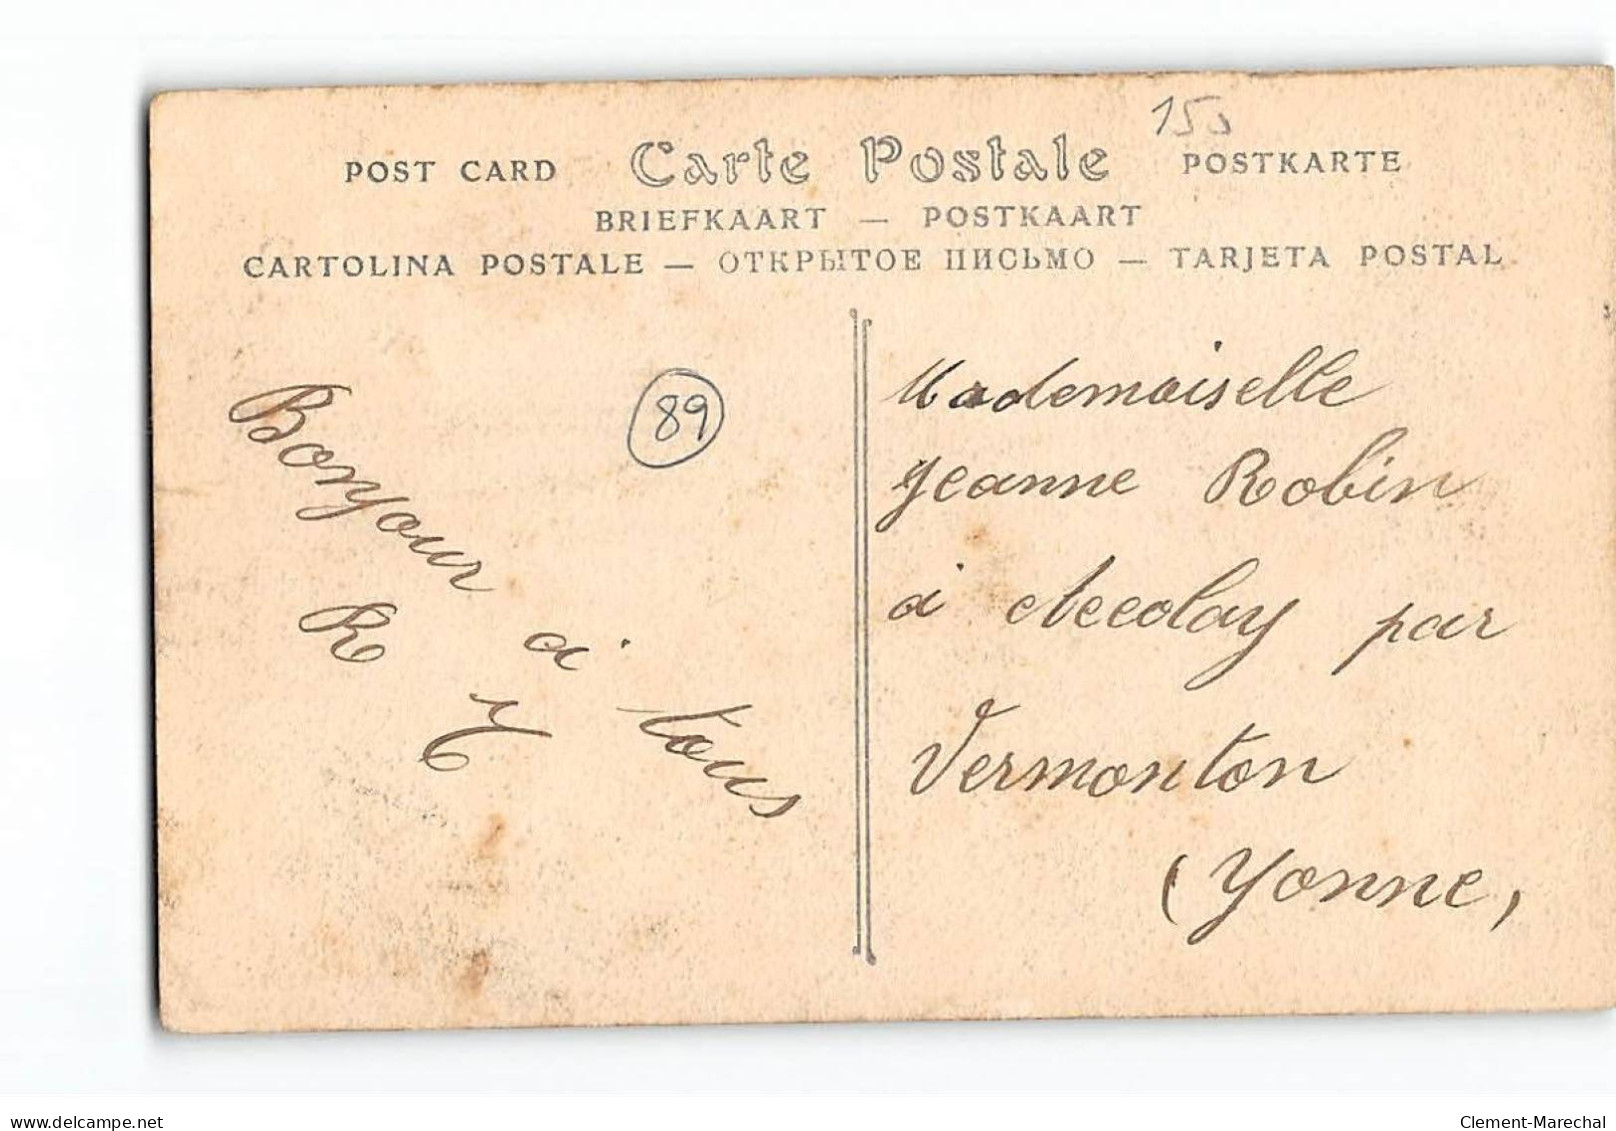 155
POST CARD Carte Postale POSTKARTE
BRIEFKAART — POSTKAART
CARTOLINA POSTALE — ОТКРЫТОЕ ПИСЬМО — TARJETA POSTAL
89
Bonjour à tous
R T
Mademoiselle
Jeanne Robin
à Accolay par
Vermonton
(Yonne,
www.delcampe.net
Clement-Marechal